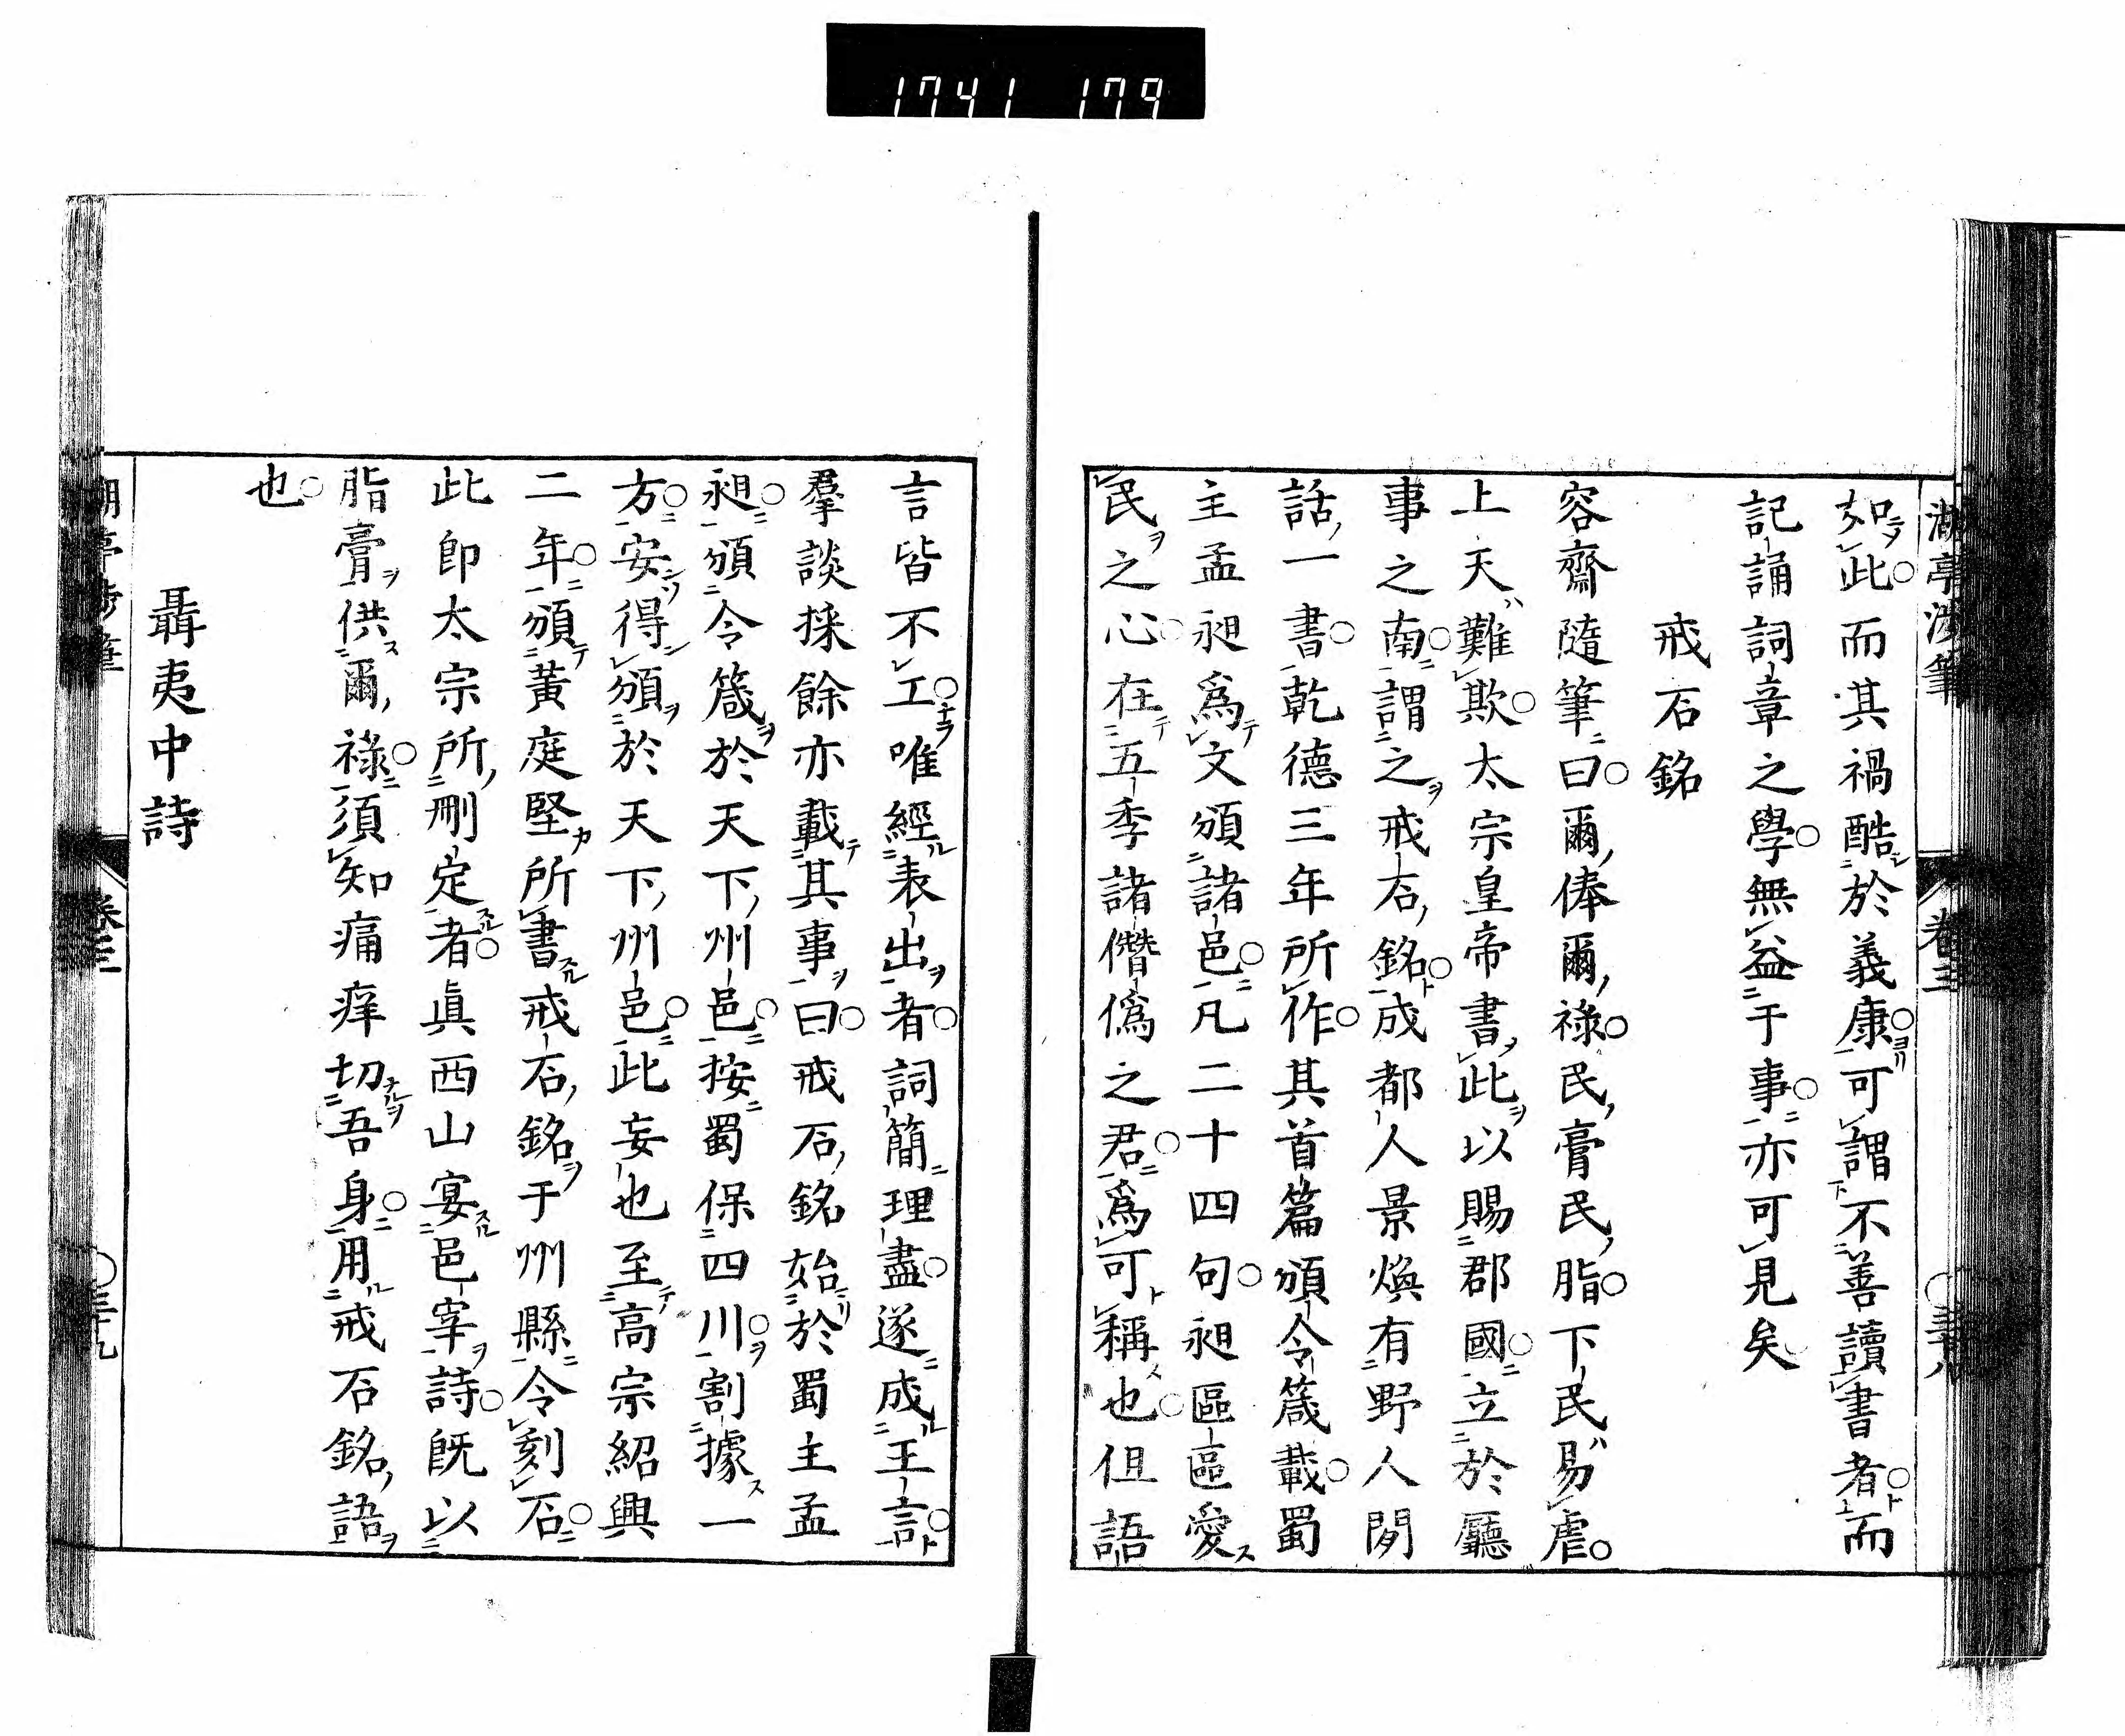 1741 179
如此而其禍酷於義康可謂不善讀書者而
記誦詞章之學無益于事亦可見矣
戒石銘
容齋隨筆曰爾俸爾祿民膏民脂下民易虐
上天難欺太宗皇帝書此以賜郡國立於廳
事之南謂之戒石銘成都人景煥有野人閒
話一書乾德三年所作其首篇頒令箴載蜀
主孟昶爲文頒諸邑凡二十四句昶區區愛
民之心在五季諸僭僞之君爲可稱也但語
言皆不工唯經表出者詞簡理盡遂成王言
羣談採餘亦載其事曰戒石銘始於蜀主孟
昶頒令箴於天下州邑按蜀保四川割據一
方安得頒於天下州邑此妄也至高宗紹興
二年頒黃庭堅所書戒石銘于州縣令刻石
此卽太宗所刪定者眞西山宴邑宰詩旣以
脂膏供爾祿須知痛痒切吾身用戒石銘語
也
聶夷中詩